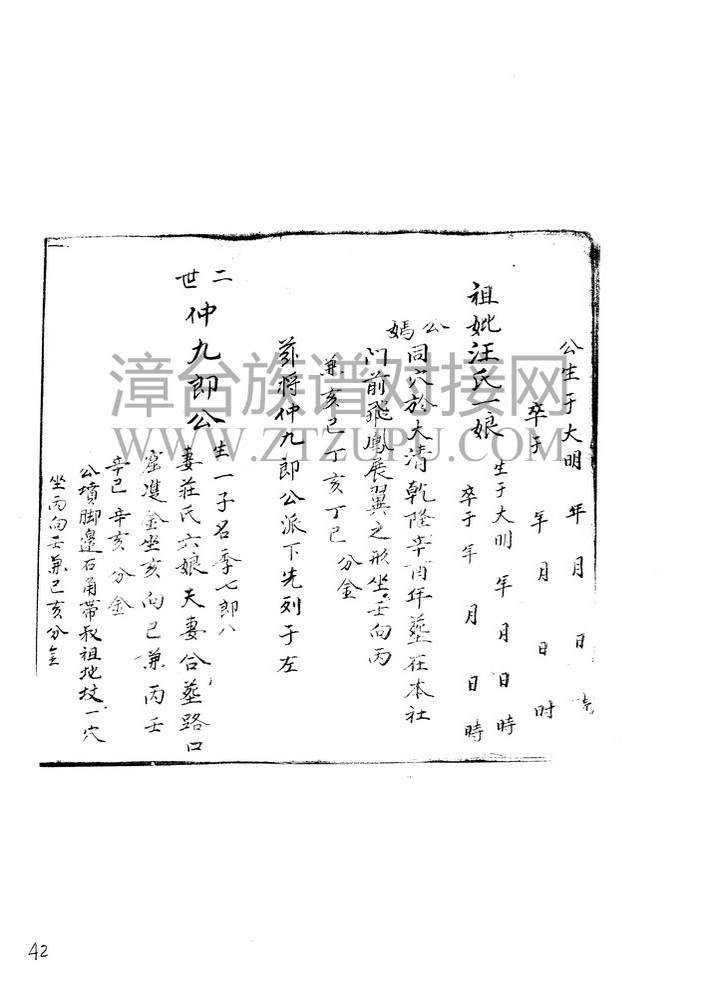 公生于大明 年 月 日 時
卒于 年 月 日 時
祖妣汪氏一娘 生于大明 年 月 日 時
卒于 年 月 日 時
公媽同穴於大清乾隆辛酉年塟在本社
门前飛鳳展翼之形坐壬向丙
兼亥巳丁亥丁巳 分金
茲將仲九郎公派下先列于左
二世 仲九郎公 生一子名季七郎八
妻莊氏六娘夫妻合塟路口
窑進金坐亥向巳兼丙壬
辛巳辛亥分金
公墳脚邊石角帶叔祖地坟一穴
坐丙向壬兼巳亥分金
漳台族谱对接网
WWW.ZTZUPU.COM
42